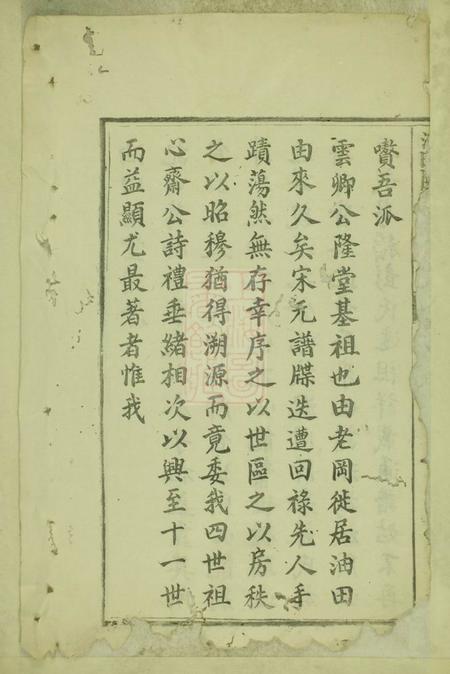 嚽吾派
雲卿公隆堂基祖也由老岡徙居油田
由來久矣宋元譜牒迭遭回祿先人手
蹟蕩然無存幸序之以世區之以房秩
之以昭穆猶得溯源而竟委我四世祖
心齋公詩禮垂緒相次以興至十一世
而益顯尤最著者惟我